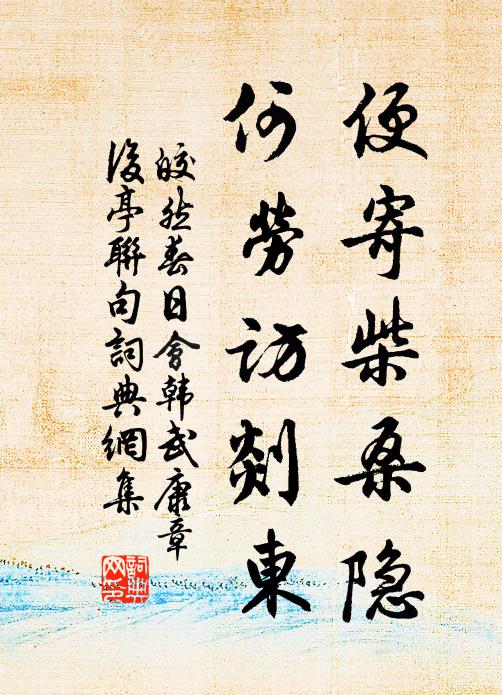 便寄柴桑隐
何勞访剡東
皎然春日會韩武康章
後亭聯句詞典網集